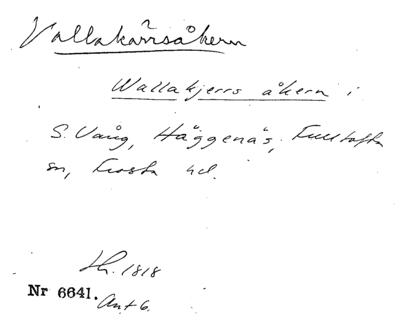 Vallakärrsåkern
Wallakjerrs åkern i
S. Vång, Häggenäs, Fulltofta
sn, Frosta hd.
Lh. 1818
Nr 6641. Ant 6.